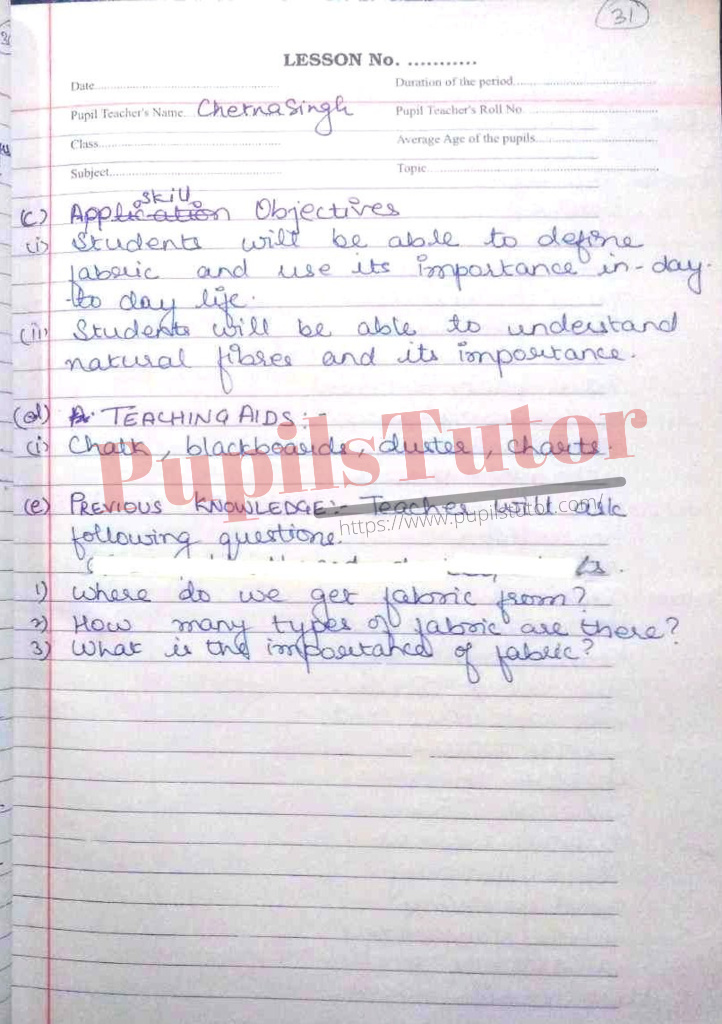 31
LESSON No. ...........
Date
Duration of the period
Pupil Teacher's Name Chetna Singh
Pupil Teacher's Roll No
Class
Average Age of the pupils
Subject
Topic
skill
(c) Application Objectives
(i) Students will be able to define
fabric and use its importance in-day-
to day life.
(ii) Students will be able to understand
natural fibres and its importance.
(d) TEACHING AIDS :-
(i) Chalk, blackboards, duster, charts.
PupilsTutor
(e) PREVIOUS KNOWLEDGE:- Teacher will ask
https://www.pupilstutor.com/
following questions.
1) Where do we get fabric from?
2) How many types of fabric are there?
3) What is the importance of fabric?